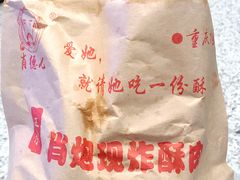 肖炮儿
重庆
爱她,
就请她吃一份酥
肖炮现炸酥肉